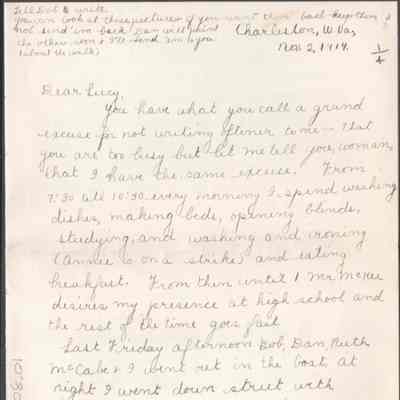 Tell Bob to write
you can look at these pictures if you want them back keep them &
not send 'em back. Dan will print
the other soon & I'll send 'em to you
(about the walk)
Charleston, W.Va,
Nov. 2, 1919.
1/4
Dear Lucy,
You have what you call a grand
excuse for not writing oftener to me — that
you are too busy but let me tell you, woman,
that I have the same excuse. From
7:30 till 10:30 every morning I spend washing
dishes, making beds, opening blinds,
studying, and washing and ironing
(Annie is on a strike) and eating
breakfast. From then until 1 Mr. McKee
desires my presence at high school and
the rest of the time goes fast.
Last Friday afternoon Bob, Dan, Ruth
McCabe & I went out in the boat, at
night I went down street with